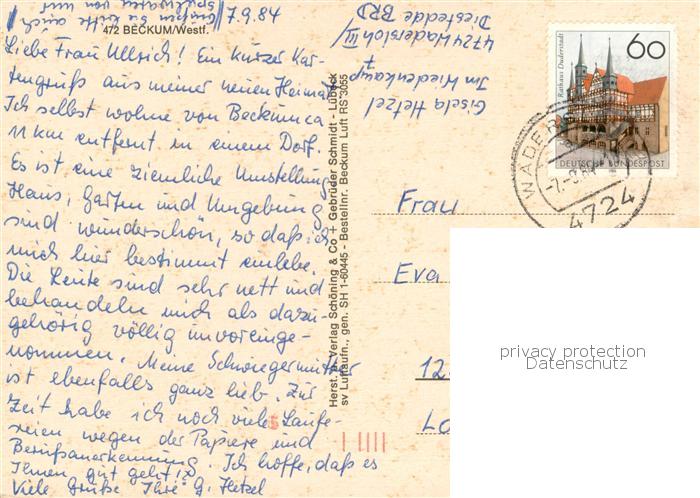 7.9.84
472 BECKUM/Westf.
Liebe Frau Ullrich! Ein kurzer Kar-
tengruß aus meiner neuen Heimat.
Ich selbst wohne von Beckum ca
11 km entfernt in einem Dorf.
Es ist eine ziemliche Umstellung
Haus, Garten und Umgebung
sind wunderschön, so daß ich
mich hier bestimmt einlebe.
Die Leute sind sehr nett und
behandeln mich als dazu-
gehörig völlig unvoreinge-
nommen. Meine Schwiegermutter
ist ebenfalls ganz lieb. Zur
Zeit habe ich noch viele Laufe-
reien wegen der Papiere und
Berufsanerkennung. Ich hoffe, daß es
Ihnen gut geht
Viele Grüße Ihre G. Hetzel
Gisela Hetzel
Im Wiedenkamp 7
4724 Wadersloh III
Diestedde BRD
Herst. u. Verlag Schöning & Co + Gebrüder Schmidt - Lübeck
sv Luftaufn., gen. SH 1-60445 - Bestellnr. Beckum Luft RS 3055
Rathaus Duderstadt
60
DEUTSCHE BUNDESPOST
WADER
4724
Frau
Eva
12
privacy protection
Datenschutz